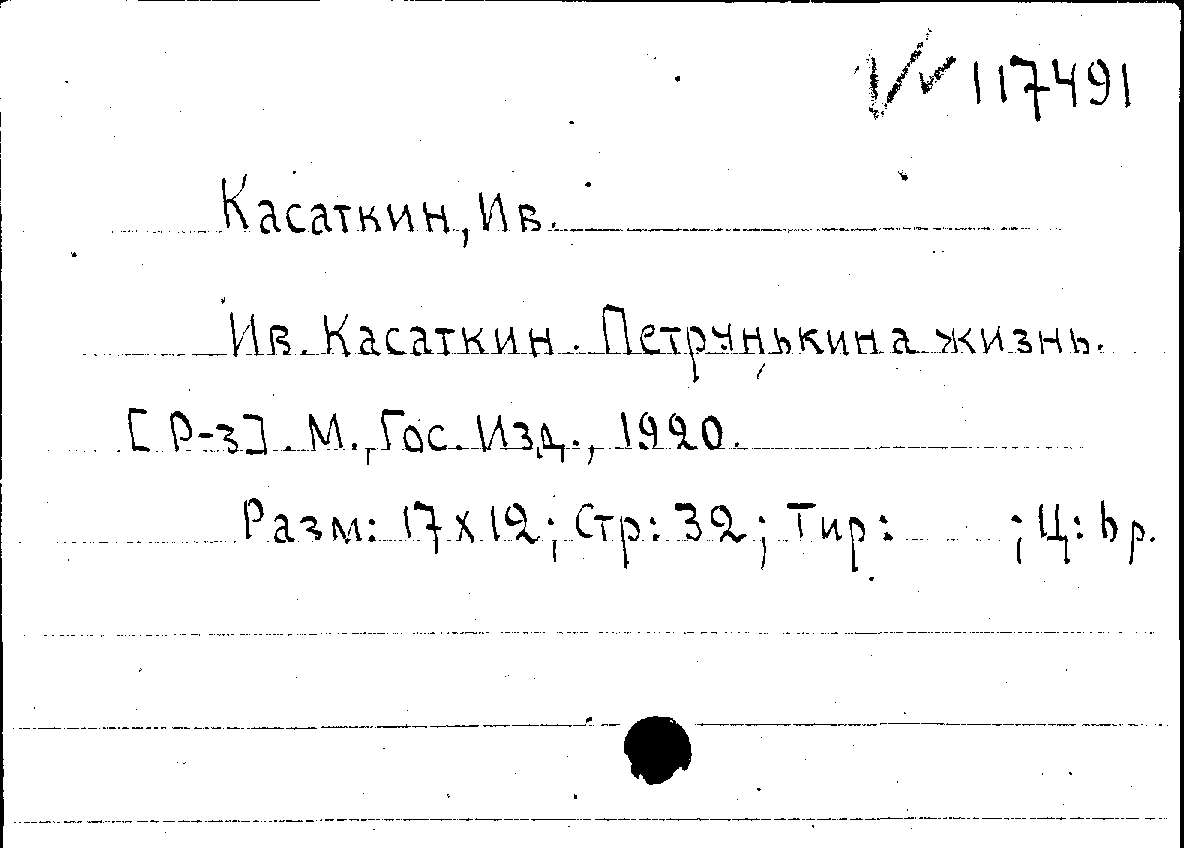 117491
Касаткин, Ив.
Ив. Касаткин. Петрунькина жизнь.
[Р-з]. М., Гос. Изд., 1920.
Разм: 17х12; Стр: 32; Тир: ; Ц: 6 р.